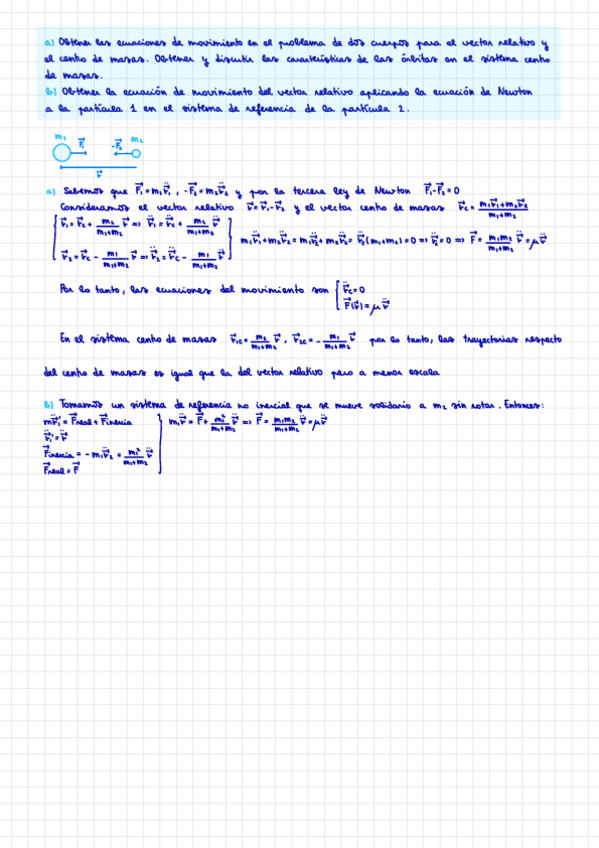 a) Obtener las ecuaciones de movimiento en el problema de dos cuerpos para el vector relativo y
el centro de masas. Obtener y discutir las características de las órbitas en el sistema centro
de masas.
b) Obtener la ecuación de movimiento del vector relativo aplicando la ecuación de Newton
a la partícula 1 en el sistema de referencia de la partícula 2.
m₁ F⃗₁ -F⃗₂ m₂
r⃗
a) Sabemos que F⃗₁=m₁r⃗̈₁ , -F⃗₂=m₂r⃗̈₂ y por la tercera ley de Newton F⃗₁-F⃗₂=0
Consideramos el vector relativo r⃗=r⃗₁-r⃗₂ y el vector centro de masas r⃗c = (m₁r⃗₁+m₂r⃗₂)/(m₁+m₂)
r⃗₁=r⃗c + m₂/(m₁+m₂) r⃗ => r⃗̈₁=r⃗̈c + m₂/(m₁+m₂) r⃗̈
m₁r⃗̈₁+m₂r⃗̈₂=m₁r⃗̈c+m₂r⃗̈c=r⃗̈c(m₁+m₂)=0 => r⃗̈c=0 => F⃗ = m₁m₂/(m₁+m₂) r⃗̈=μr⃗̈
r⃗₂=r⃗c - m₁/(m₁+m₂) r⃗ => r⃗̈₂=r⃗̈c - m₁/(m₁+m₂) r⃗̈
Por lo tanto, las ecuaciones del movimiento son { r⃗̈c=0
F⃗(r⃗)=μr⃗̈
En el sistema centro de masas r⃗₁c= m₂/(m₁+m₂) r⃗ , r⃗₂c= - m₁/(m₁+m₂) r⃗ por lo tanto, las trayectorias respecto
del centro de masas es igual que la del vector relativo pero a menor escala
b) Tomamos un sistema de referencia no inercial que se mueve solidario a m₂ sin rotar. Entonces:
mr⃗̈₁'=F⃗real+F⃗inercia
m₁r⃗̈=F⃗+ m₁²/(m₁+m₂) r⃗̈ => F⃗= m₁m₂/(m₁+m₂) r⃗̈=μr⃗̈
r⃗̈₁'=r⃗̈
F⃗inercia = -m₁r⃗̈₂ = m₁²/(m₁+m₂) r⃗̈
F⃗real=F⃗